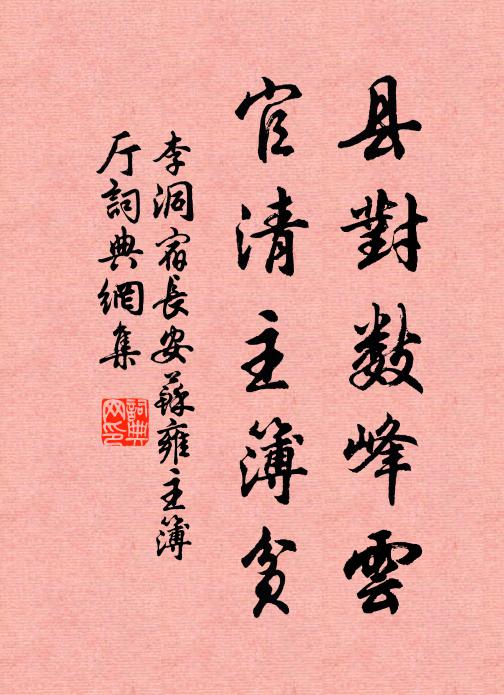 县對数峰雲
官清主簿貧
李洞宿長安蘇雍主簿
厅詞典網集
詞典網印